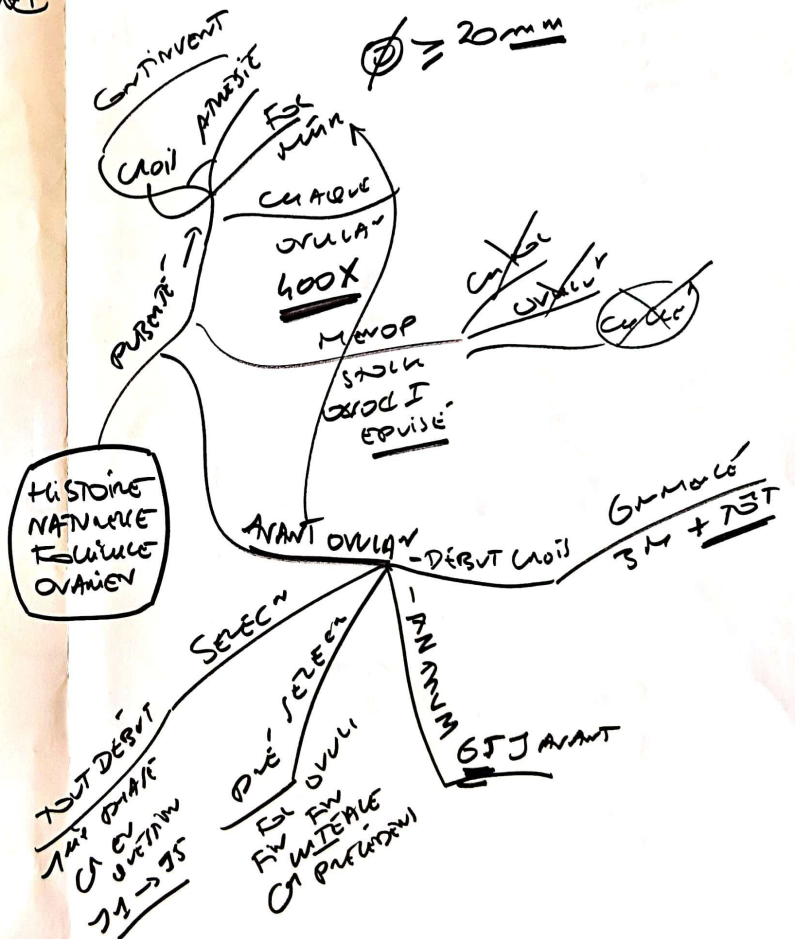 Ø ≥ 20 mm
CONTINUENT
CROIS
ATRÉSIE
FOL
MÛR
CHAQUE
OVULAᴺ
400X
PUBERTÉ
MENOP
STOCK
OVOC I
EPUISÉ
OVULAᴺ
CYCLE
HISTOIRE
NATURELLE
FOLLICULE
OVARIEN
AVANT OVULAᴺ
- DÉBUT CROIS
COMMENCÉ
3M + TÔT
SELECᴺ
TOUT DÉBUT
1ÈRE PHASE
EN QUESTION
J1 → J5
PRÉ SELECᴺ
FOL OVULI
FIN FIN
LUTÉALE
PRECEDENT
- ANTRUM
65J AVANT